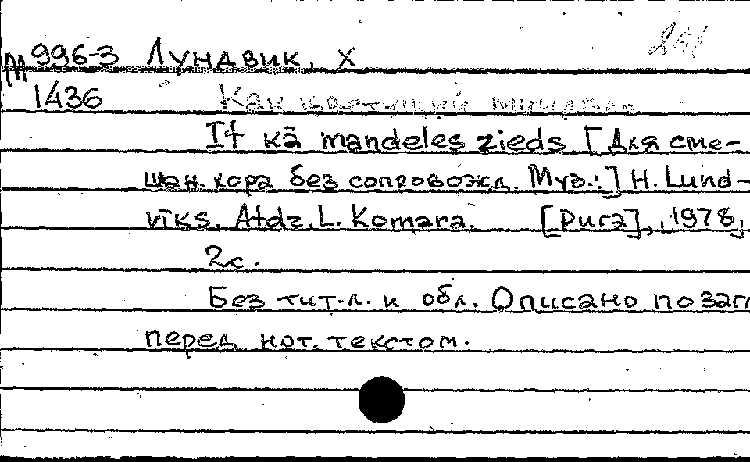 М 996-3 Лундвик, Х
1436 Как
It kā mandeles zieds [Для сме-
шан. хора без сопровожд. Муз.:] H. Lund-
vīks. Atdz. L. Komara. [Рига], 1978,
2с.
Без тит. л. и обл. Описано по загл
перед нот. текстом.